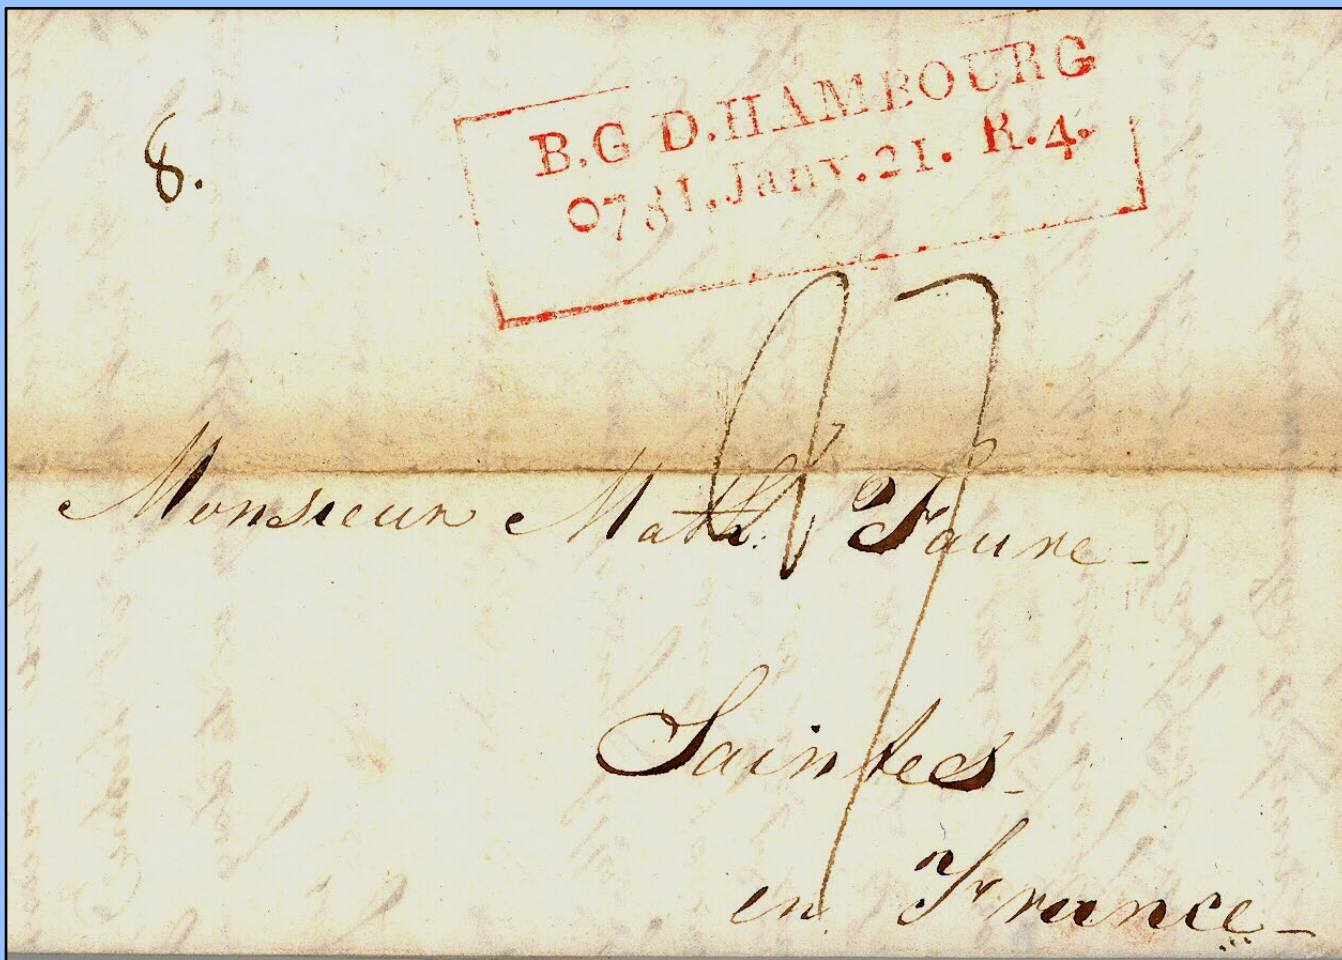 B.G D.HAMBOURG
0781.Janv.21. R.4.
8.
Monsieur Math. Faure
Saintes
en France